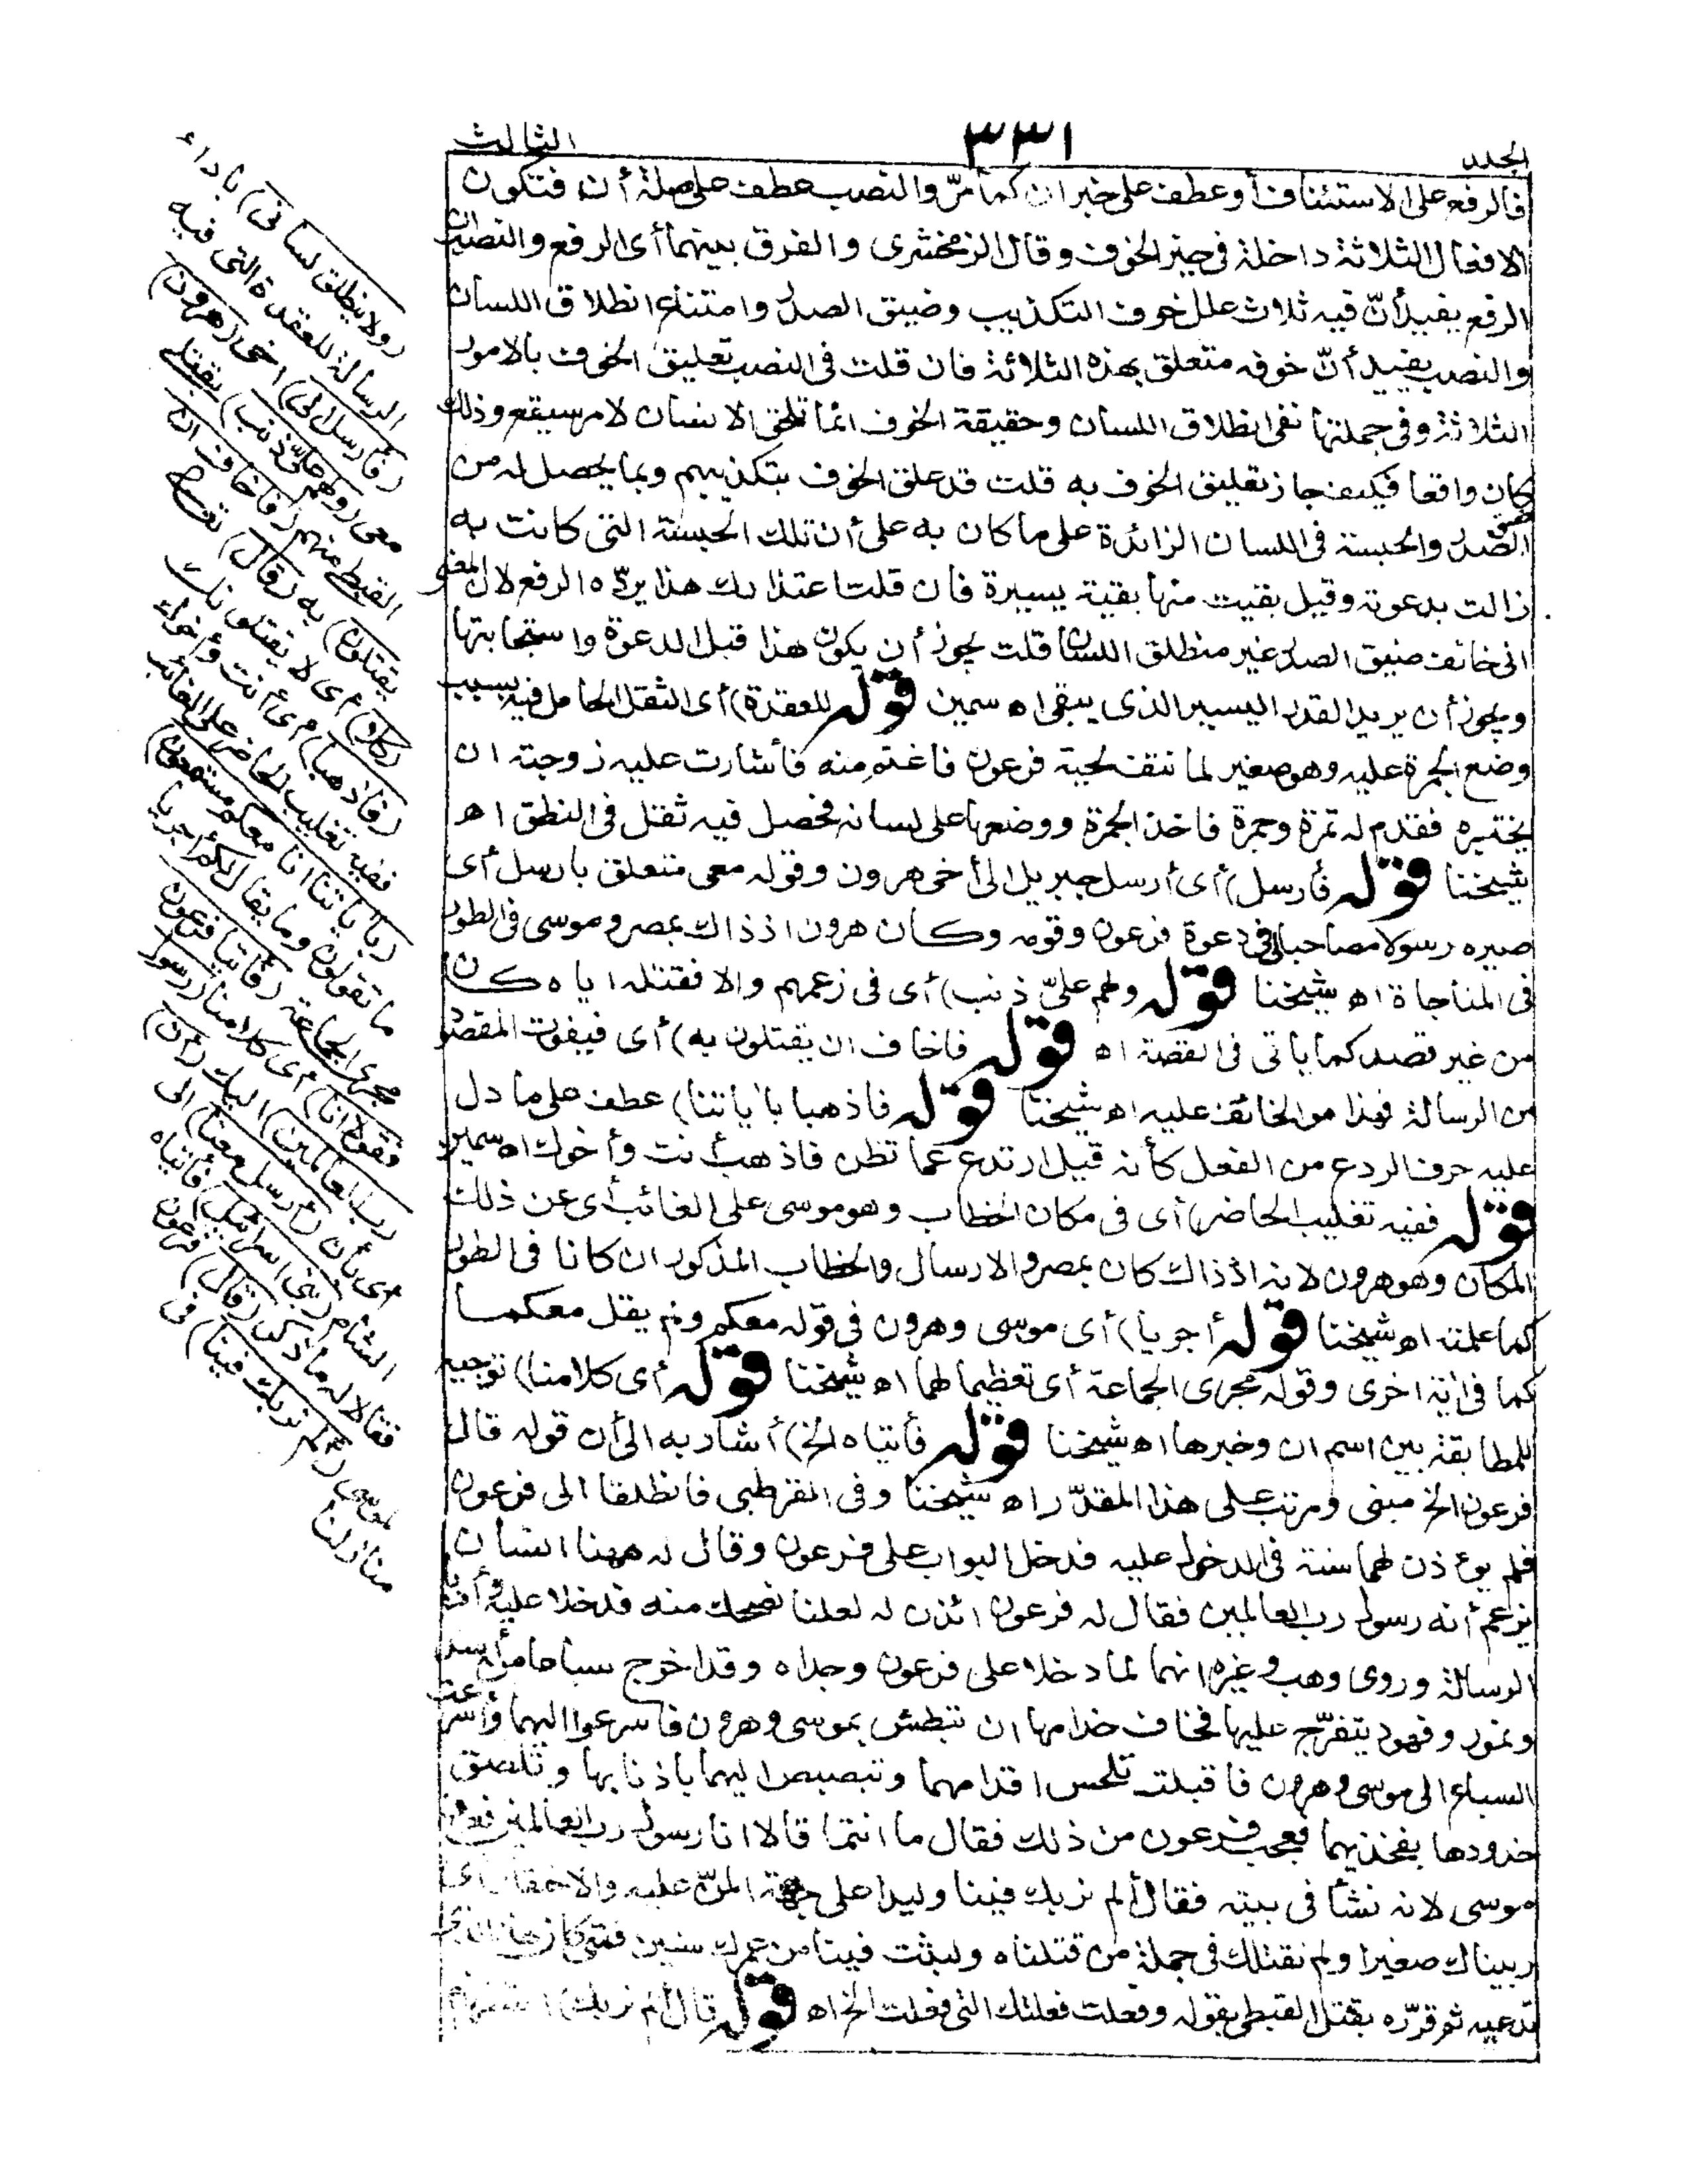 الجلد ٣٣١ الثالث
فالرفع على الاستئناف أو عطف على خبر ان كما مرّ والنصب عطف على صلة أن فتكون
الافعال الثلاثة داخلة فى حيز الخوف وقال الزمخشرى والفرق بينهما أى الرفع والنصب ان
الرفع يفيد أنّ فيه ثلاث علل خوف التكذيب وضيق الصدر وامتناع انطلاق اللسان
والنصب يفيد أنّ خوفه متعلق بهذه الثلاثة فان قلت فى النصب تعليق الخوف بالامور
الثلاثة وفى جملتها نفى انطلاق اللسان وحقيقة الخوف انما تلحق الانسان لامر سيقع وذلك
كان واقعا فكيف جاز تعليق الخوف به قلت قد علق الخوف بتكذيبهم وبما يحصل له من
ضيق الصدر والحبسة فى اللسان الزائدة على ما كان به على أن تلك الحبسة التى كانت به
زالت بدعوته وقيل بقيت منها بقية يسيرة فان قلت اعتذارك هذا يردّه الرفع لان المعنى
انى خائف ضيق الصدر غير منطلق اللسان قلت يجوز أن يكون هذا قبل الدعوة واستجابتها
ويجوز أن يريد القدر اليسير الذى يبقى اه سمين قوله للعقدة) أى الثقل الحاصل فيه بسبب
وضع الجمرة عليه وهو صغير لما نتف لحية فرعون فاغتم منه فأشارت عليه زوجته ان
يختبره فقدم له تمرة وجمرة فاخذ الجمرة ووضعها على لسانه فحصل فيه ثقل فى النطق اه
شيخنا قوله فأرسل) أى أرسل جبريل الى أخى هرون وقوله معى متعلق بارسل أى
صيره رسولا مصاحبا لى فى دعوة فرعون وقومه وكان هرون اذ ذاك بمصر وموسى فى الطور
فى المناجاة اه شيخنا قوله ولهم علىّ ذنب) أى فى زعمهم والا فقتله اياه كان
من غير قصد كما ياتى فى القصة اه قوله فاخاف ان يقتلون به) أى فيفوت المقصود
من الرسالة فهذا هو الخائف عليه اه شيخنا قوله فاذهبا بآياتنا) عطف على ما دل
عليه حرف الردع من الفعل كأنه قيل ارتدع عما تظن فاذهب أنت وأخوك اه سمين
قوله ففيه تغليب الحاضر) أى فى مكان الخطاب وهو موسى على الغائب أى عن ذلك
المكان وهو هرون لانه اذ ذاك كان بمصر والارسال والخطاب المذكور ان كانا فى الطور
كما علمت اه شيخنا قوله أجريا) أى موسى وهرون فى قوله معكم ولم يقل معكما
كما فى آية اخرى وقوله مجرى الجماعة أى تعظيما لهما اه شيخنا قوله أى كلا منا) توجيه
للمطابقة بين اسم ان وخبرها اه شيخنا قوله فأتياه الخ) أشار به الى أن قوله قال
فرعون الخ مبنى ومرتب على هذا المقدّر اه شيخنا وفى القرطبى فانطلقا الى فرعون
فلم يوءذن لهما سنة فى الدخول عليه فدخل البواب على فرعون وقال له ههنا انسان
يزعم أنه رسول رب العالمين فقال له فرعون ائذن له لعلنا نضحك منه فدخلا عليه وأديا
الرسالة وروى وهب وغيره انهما لما دخلا على فرعون وجداه وقد اخرج سباعا من أسد
ونمور وفهود يتفرّج عليها فخاف خدامها ان تبطش بموسى وهرون فاسرعوا اليهما واسرعت
السباع الى موسى وهرون فاقبلت تلحس اقدامهما وتبصبص اليهما باذنابها وتلصق
خدودها بفخذيهما فعجب فرعون من ذلك فقال ما انتما قالا انا رسول رب العالمين فعرف
موسى لانه نشأ فى بيته فقال ألم نربك فينا وليدا على جهة المنّ عليه والاحتقار أى
ربيناك صغيرا ولم نقتلك فى جملة من قتلناه ولبثت فينا من عمرك سنين فمتى كان هذا الذى
تدعيه ثم قرّره بقتل القبطى بقوله وفعلت فعلتك التى فعلت الخ اه قوله قال ألم نربك)
(ولا ينطلق لسانى) باداء
الرسالة للعقدة التى فيه
(فأرسل الى) اخى (هرون)
معى (ولهم علىّ ذنب) بقتل
القبطى منهم (فاخاف ان
يقتلون) به (قال) تعالى
(كلا) أى لا يقتلونك
(فاذهبا) أى أنت وأخوك
ففيه تغليب الحاضر على الغائب
(بآياتنا انا معكم مستمعون)
ما تقولون وما يقال لكم أجريا
مجرى الجماعة (فأتيا فرعون
فقولا انا) أى كلا منا (رسول
رب العالمين) اليك (أن)
أى بأن (أرسل معنا) الى
الشام (بنى اسرائيل) فأتياه
فقالا له ما ذكر (قال) فرعون
لموسى (ألم نربك فينا) فى
منازلنا